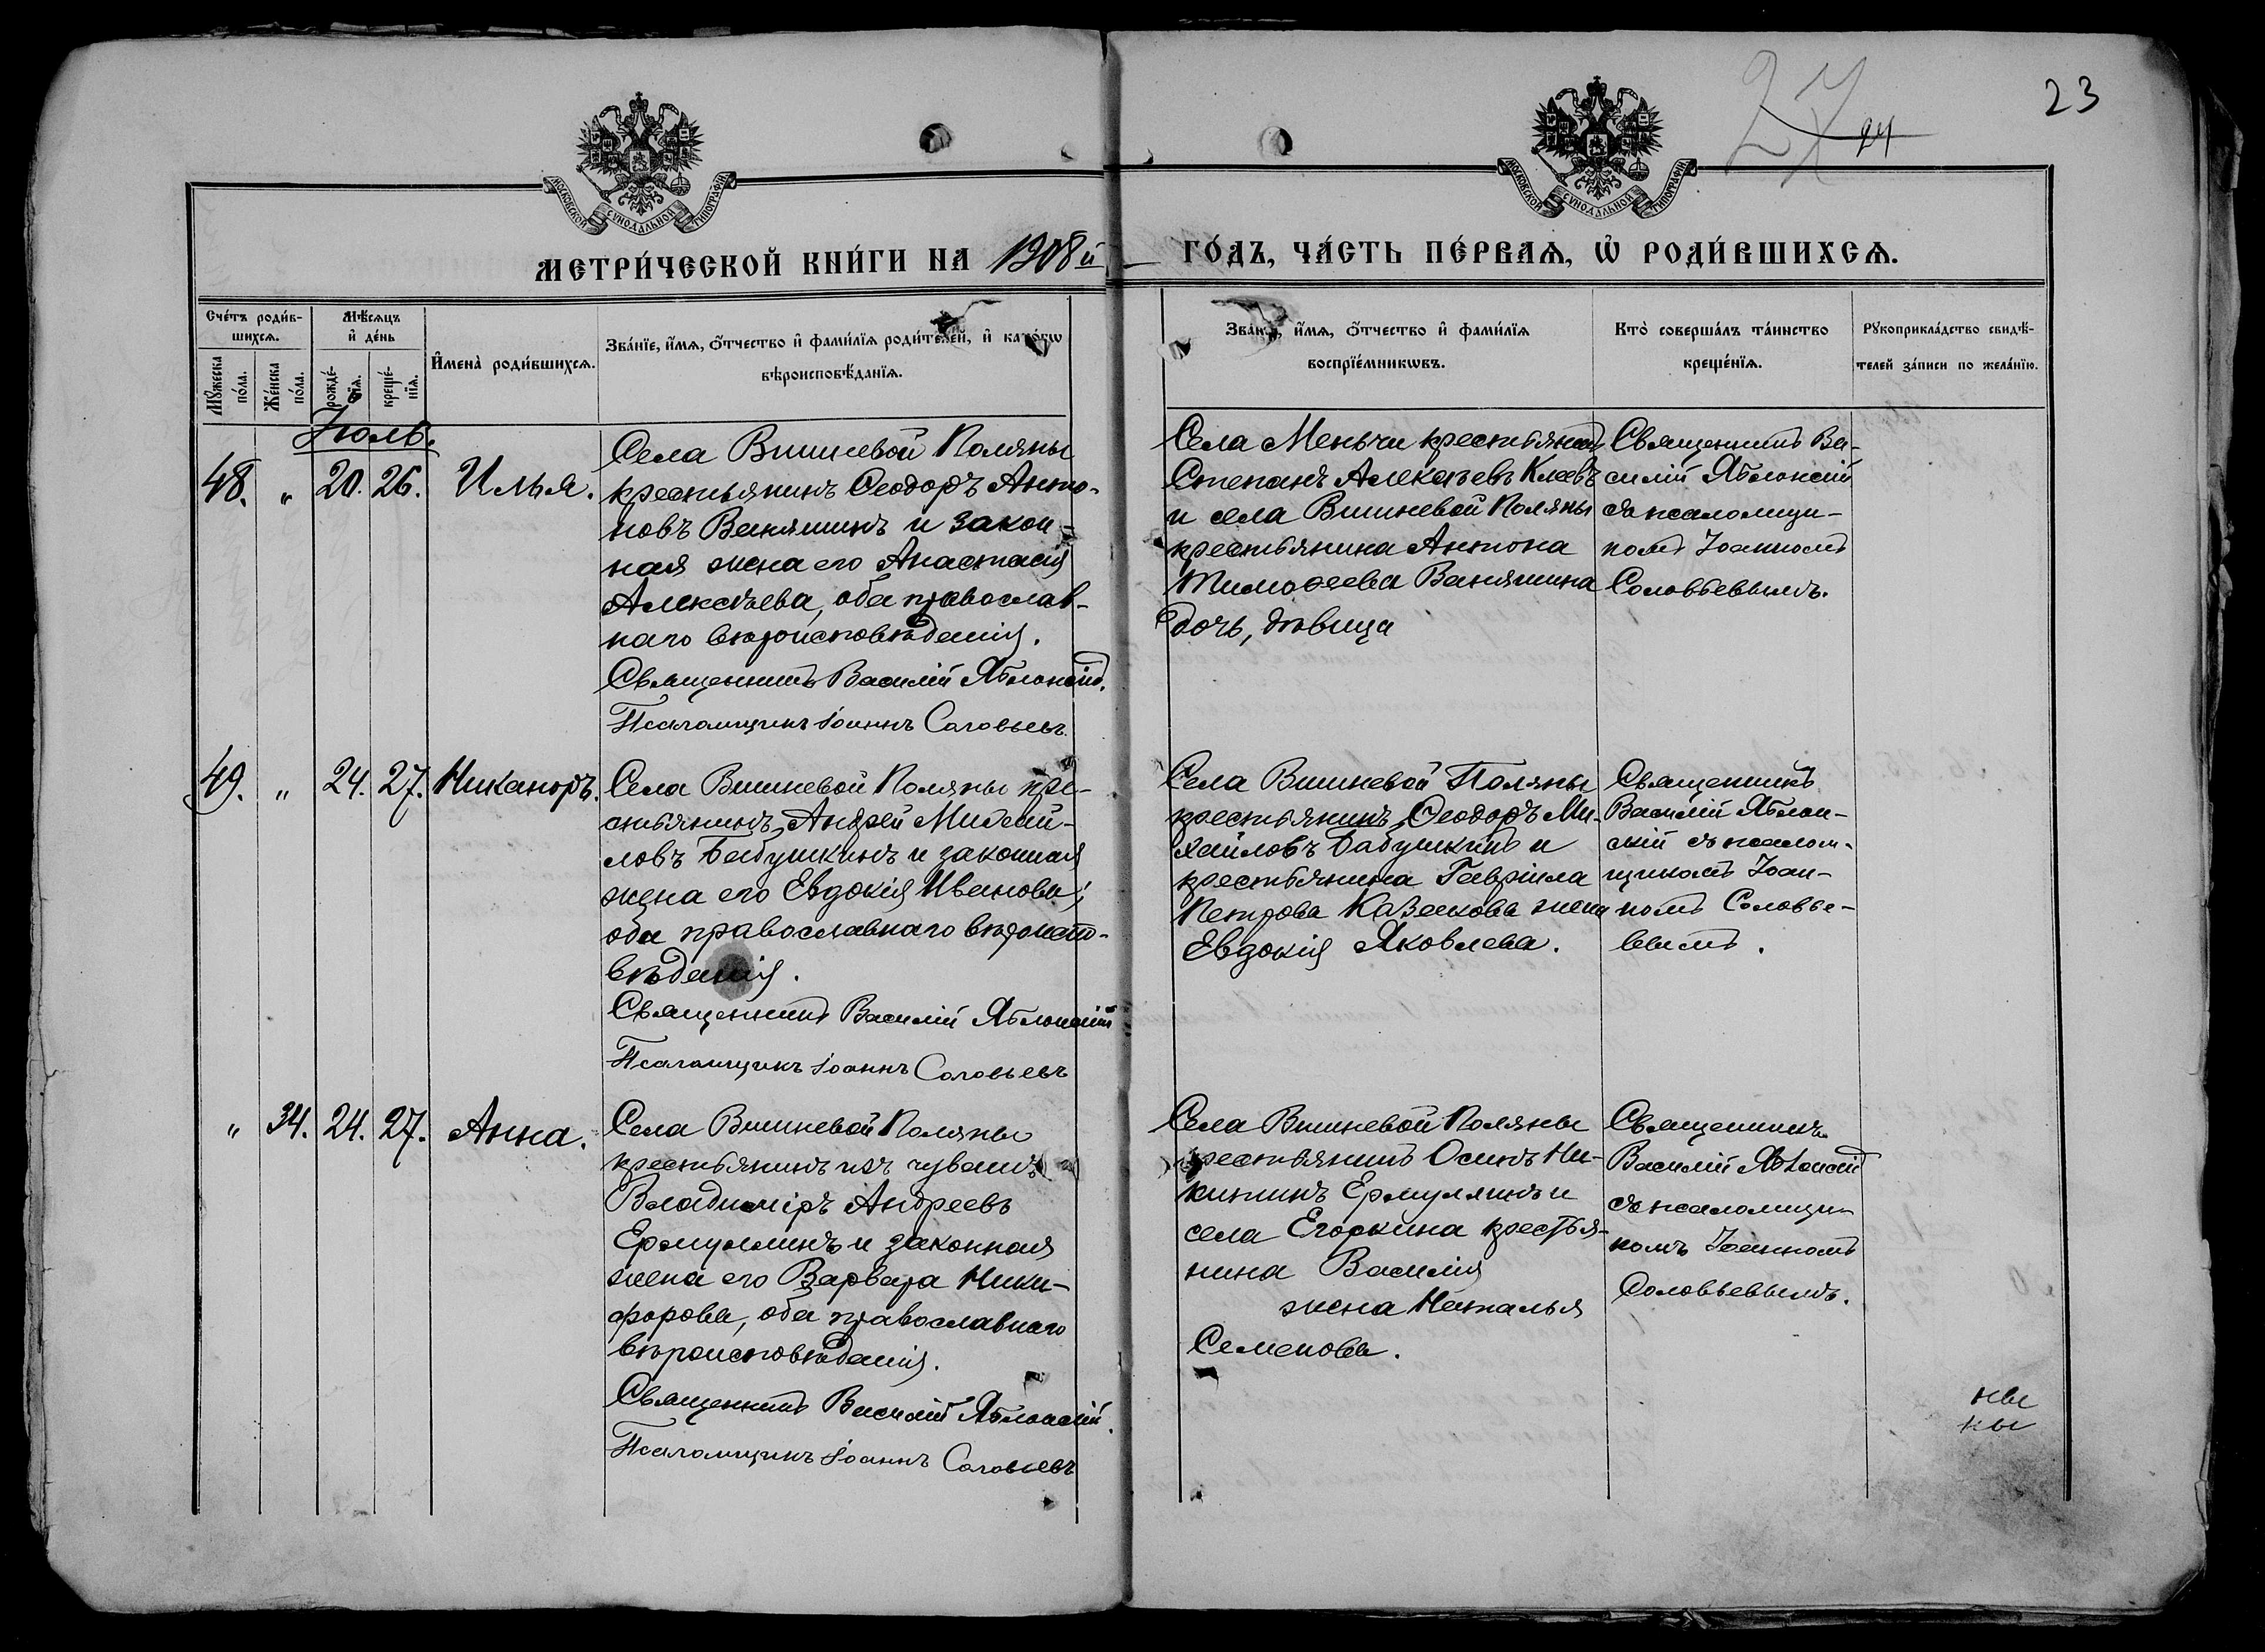 27
24
23
МОСКОВСКОЙ СУНОДАЛЬНОЙ ТИПОГРАФІИ
МОСКОВСКОЙ СУНОДАЛЬНОЙ ТИПОГРАФІИ
МЕТРИ́ЧЕСКОЙ КНИ́ГИ НА 1908й ГО́ДЪ, ЧА́СТЬ ПЕ́РВАѦ, Ѡ҆ РОДИ́ВШИХСѦ.
Сче́тъ роди́в-
шихсѧ.
Мꙋ́жеска по́ла.
Же́нска по́ла.
Мѣ́сѧцъ
и҆ де́нь
рожде́-
нїѧ.
креще́-
нїѧ.
И҆мена̀ роди́вшихсѧ.
Зва́нїе, и҆́мѧ, ѻ҆́тчество и҆ фами́лїѧ роди́телей, и҆ като́гѡ
вѣроисповѣ́данїѧ.
Зва́нїе, и҆́мѧ, ѻ҆́тчество и҆ фами́лїѧ
воспрїе́мникѡвъ.
Кто̀ соверша́лъ та́инство
креще́нїѧ.
Рꙋкоприкла́дство свидѣ́-
телей за́писи по жела́нїю.
Іюль.
48. „ 20. 26. Илья.
Села Вишневой Поляны
крестьянинъ Ѳеодоръ Анто-
новъ Ваняшинъ и закон-
ная жена его Анастасія
Алексѣева, оба православ-
наго вѣроисповѣданія.
Священникъ Василій Яблонскій.
Псаломщикъ Іоаннъ Соловьевъ.
Села Меньчи крестьянинъ
Степанъ Алексѣевъ Клеевъ
и села Вишневой Поляны
крестьянина Антона
Тимоѳеева Ваняшина
дочь, дѣвица
Священникъ Ва-
силій Яблонскій
съ псаломщи-
комъ Іоанномъ
Соловьевымъ.
49. „ 24. 27. Никаноръ.
Села Вишневой Поляны кре-
стьянинъ Андрей Михай-
ловъ Бабушкинъ и законная
жена его Евдокія Иванова;
оба православнаго вѣроиспо-
вѣданія.
Священникъ Василій Яблонскій
Псаломщикъ Іоаннъ Соловьевъ
Села Вишневой Поляны
крестьянинъ Ѳеодоръ Ми-
хайловъ Бабушкинъ и
крестьянина Гавріила
Петрова Казакова жена
Евдокія Яковлева.
Священникъ
Василій Яблон-
скій съ псалом-
щикомъ Іоан-
номъ Соловье-
вымъ.
„ 34. 24. 27. Анна.
Села Вишневой Поляны
крестьянинъ изъ чувашъ
Владиміръ Андреевъ
Ермулинъ и законная
жена его Варвара Ники-
форова, оба православнаго
вѣроисповѣданія.
Священникъ Василій Яблонскій.
Псаломщикъ Іоаннъ Соловьевъ
Села Вишневой Поляны
крестьянинъ Осипъ Ни-
китинъ Ермулинъ и
села Егоркина крестья-
нина Василія
жена Наталья
Семенова.
Священникъ
Василій Яблонскій
съ псаломщи-
комъ Іоанномъ
Соловьевымъ.